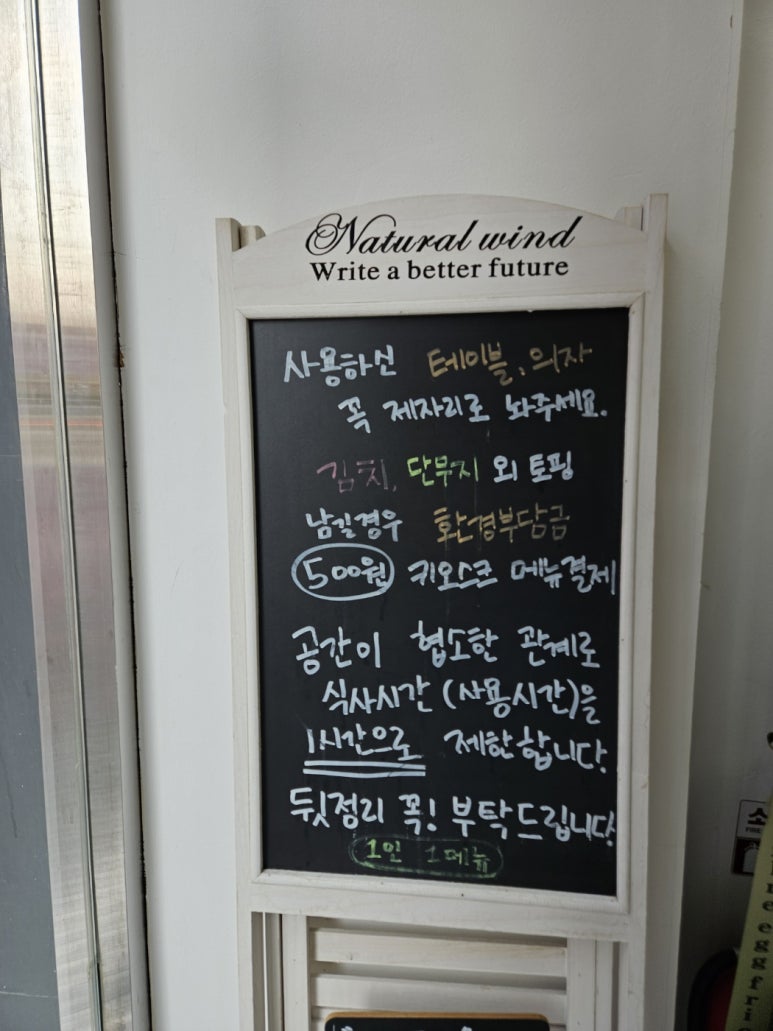 Natural wind
Write a better future
사용하신 테이블, 의자
꼭 제자리로 놔주세요.
김치, 단무지 외 토핑
남길경우 환경부담금
500원 키오스크 메뉴결제
공간이 협소한 관계로
식사시간 (사용시간)을
1시간으로 제한합니다.
뒷정리 꼭! 부탁드립니다
1인 1메뉴